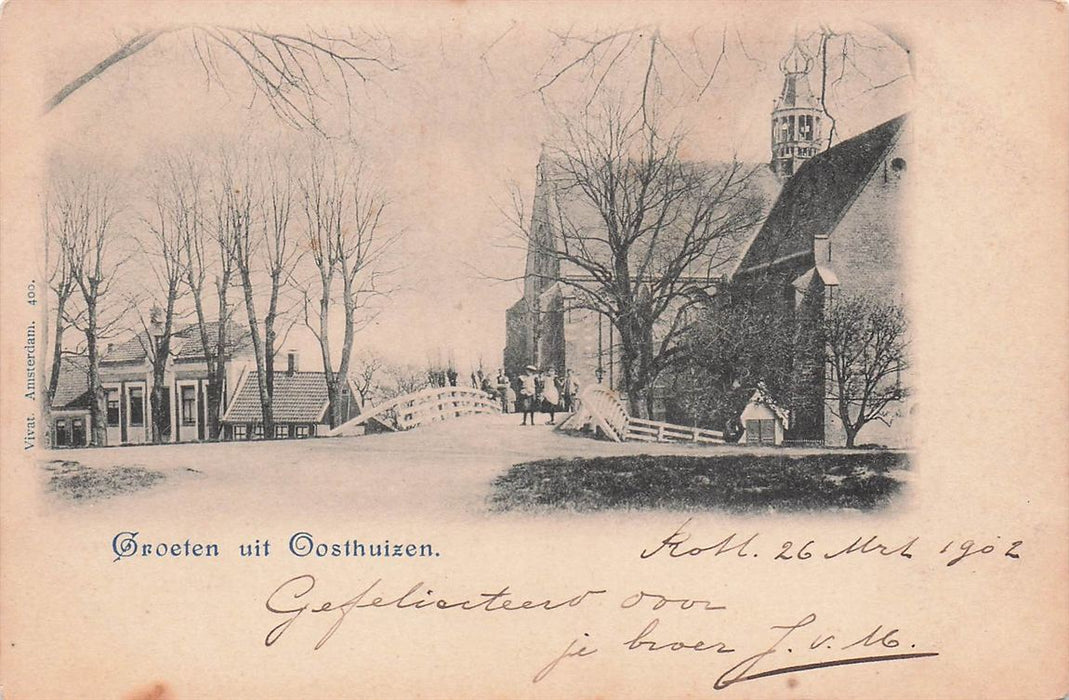 Vivat. Amsterdam. 400.
Groeten uit Oosthuizen.
Rott. 26 Mrt 1902
Gefeliciteerd door
je broer J. v. M.